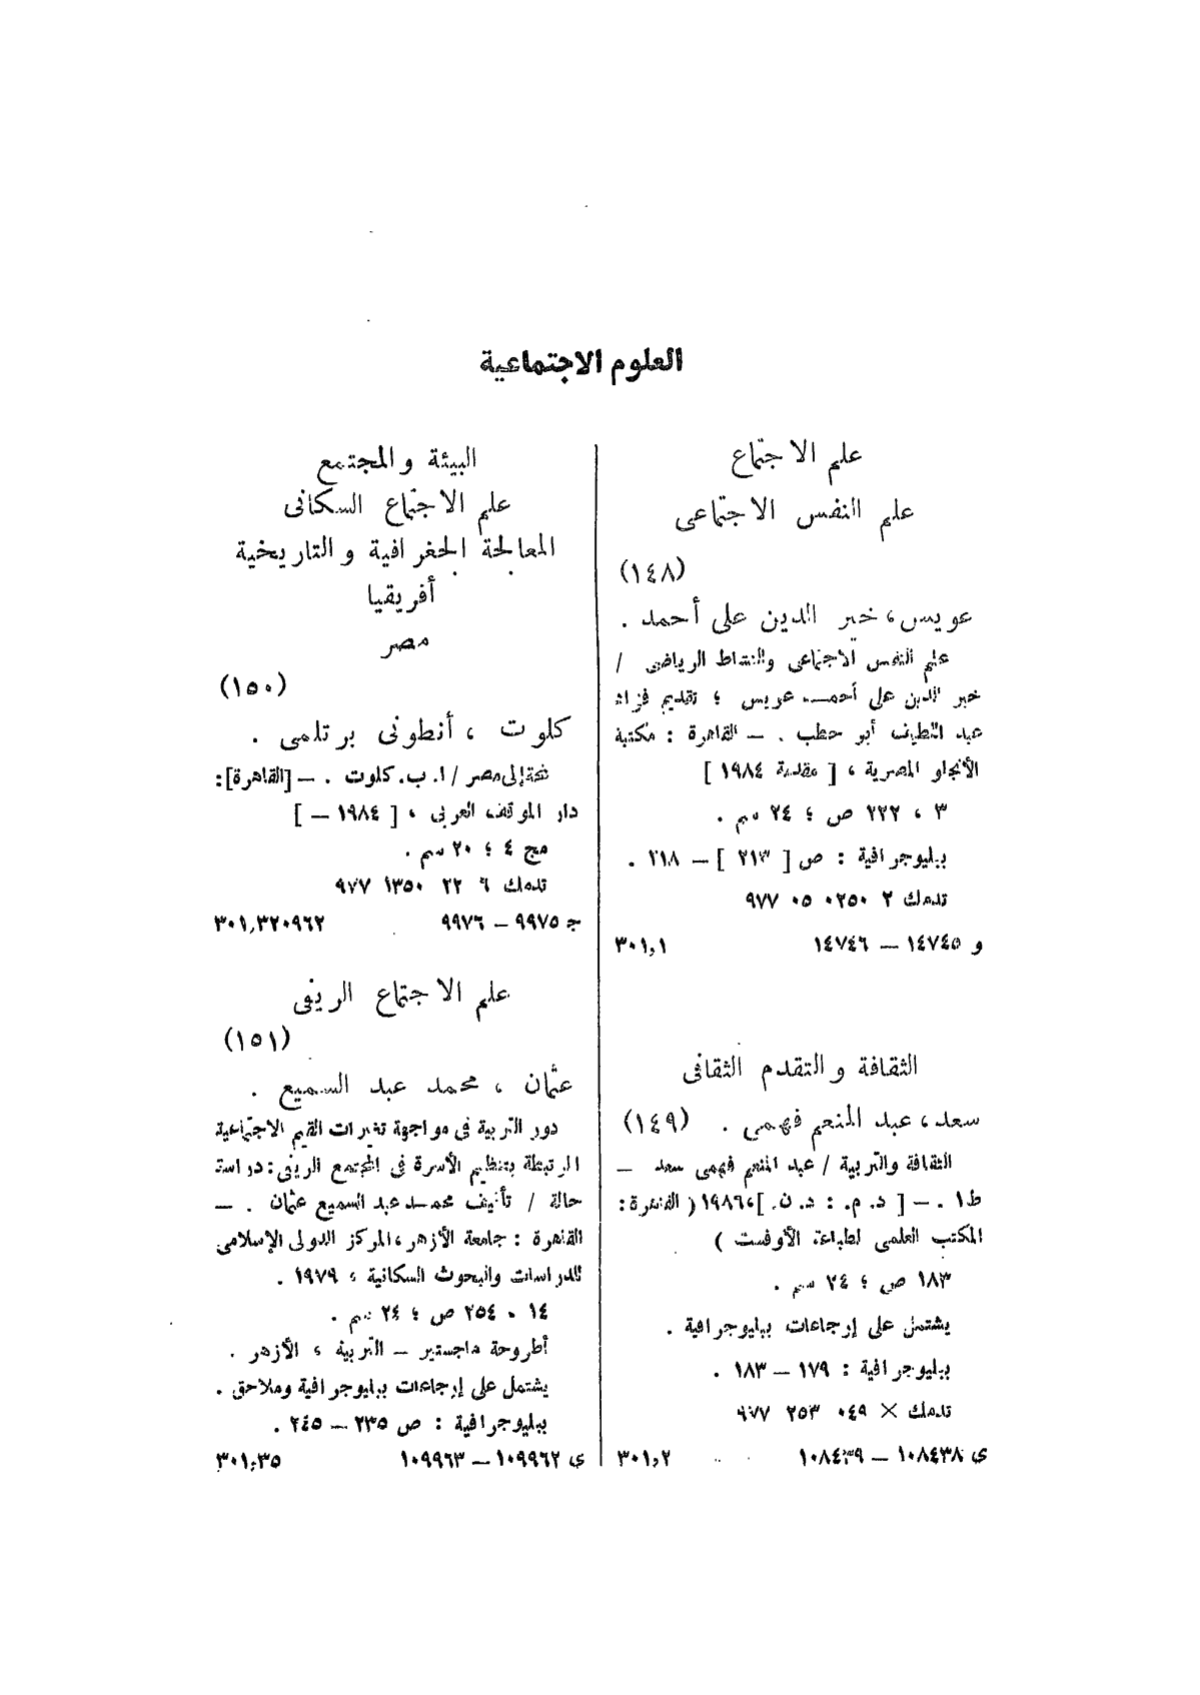 العلوم الاجتماعية
علم الاجتماع
علم النفس الاجتماعى
(١٤٨)
عويس، خير الدين على أحمد .
علم النفس الاجتماعى والنشاط الرياضى /
خير الدين على أحمد عويس ؛ تقديم فؤاد
عبد اللطيف أبو حطب . — القاهرة : مكتبة
الأنجلو المصرية ، [ مقدمة ١٩٨٤ ]
٣ ، ٢٢٢ ص ؛ ٢٤ سم .
ببليوجرافية : ص [ ٢١٣ ] — ٢١٨ .
تدمك ٢ ٠٢٥٠ ٠٥ ٩٧٧
و ١٤٧٤٥ — ١٤٧٤٦ ٣٠١,١
الثقافة والتقدم الثقافى
سعد، عبد المنعم فهمى . (١٤٩)
الثقافة والتربية / عبد المنعم فهمى سعد —
ط١ . — [ د. م. : د. ن. ]، ١٩٨٦ ( القاهرة :
المكتب العلمى لطباعة الأوفست )
١٨٣ ص ؛ ٢٤ سم .
يشتمل على إرجاعات ببليوجرافية .
ببليوجرافية : ١٧٩ — ١٨٣ .
تدمك × ٠٤٩ ٢٥٣ ٩٧٧
ى ١٠٨٤٣٨ — ١٠٨٤٣٩ ٣٠١,٢
البيئة والمجتمع
علم الاجتماع السكانى
المعالجة الجغرافية والتاريخية
أفريقيا
مصر
(١٥٠)
كلوت ، أنطونى برتلمى .
لمحة إلى مصر / ا. ب. كلوت . — [القاهرة]:
دار الموقف العربى ، [ ١٩٨٤ — ]
مج ٤ ؛ ٢٠ سم .
تدمك ٦ ٢٢ ١٣٥٠ ٩٧٧
ج ٩٩٧٥ — ٩٩٧٦ ٣٠١,٣٢٠٩٦٢
علم الاجتماع الريفى
(١٥١)
عثمان ، محمد عبد السميع .
دور التربية فى مواجهة تغيرات القيم الاجتماعية
المرتبطة بتنظيم الأسرة فى المجتمع الريفى: دراسة
حالة / تأليف محمد عبد السميع عثمان . —
القاهرة : جامعة الأزهر، المركز الدولى الإسلامى
للدراسات والبحوث السكانية ، ١٩٧٩ .
١٤ ، ٢٥٤ ص ؛ ٢٤ سم .
أطروحة ماجستير — التربية ، الأزهر .
يشتمل على إرجاعات ببليوجرافية وملاحق .
ببليوجرافية : ص ٢٣٥ — ٢٤٥ .
ى ١٠٩٩٦٢ — ١٠٩٩٦٣ ٣٠١,٣٥